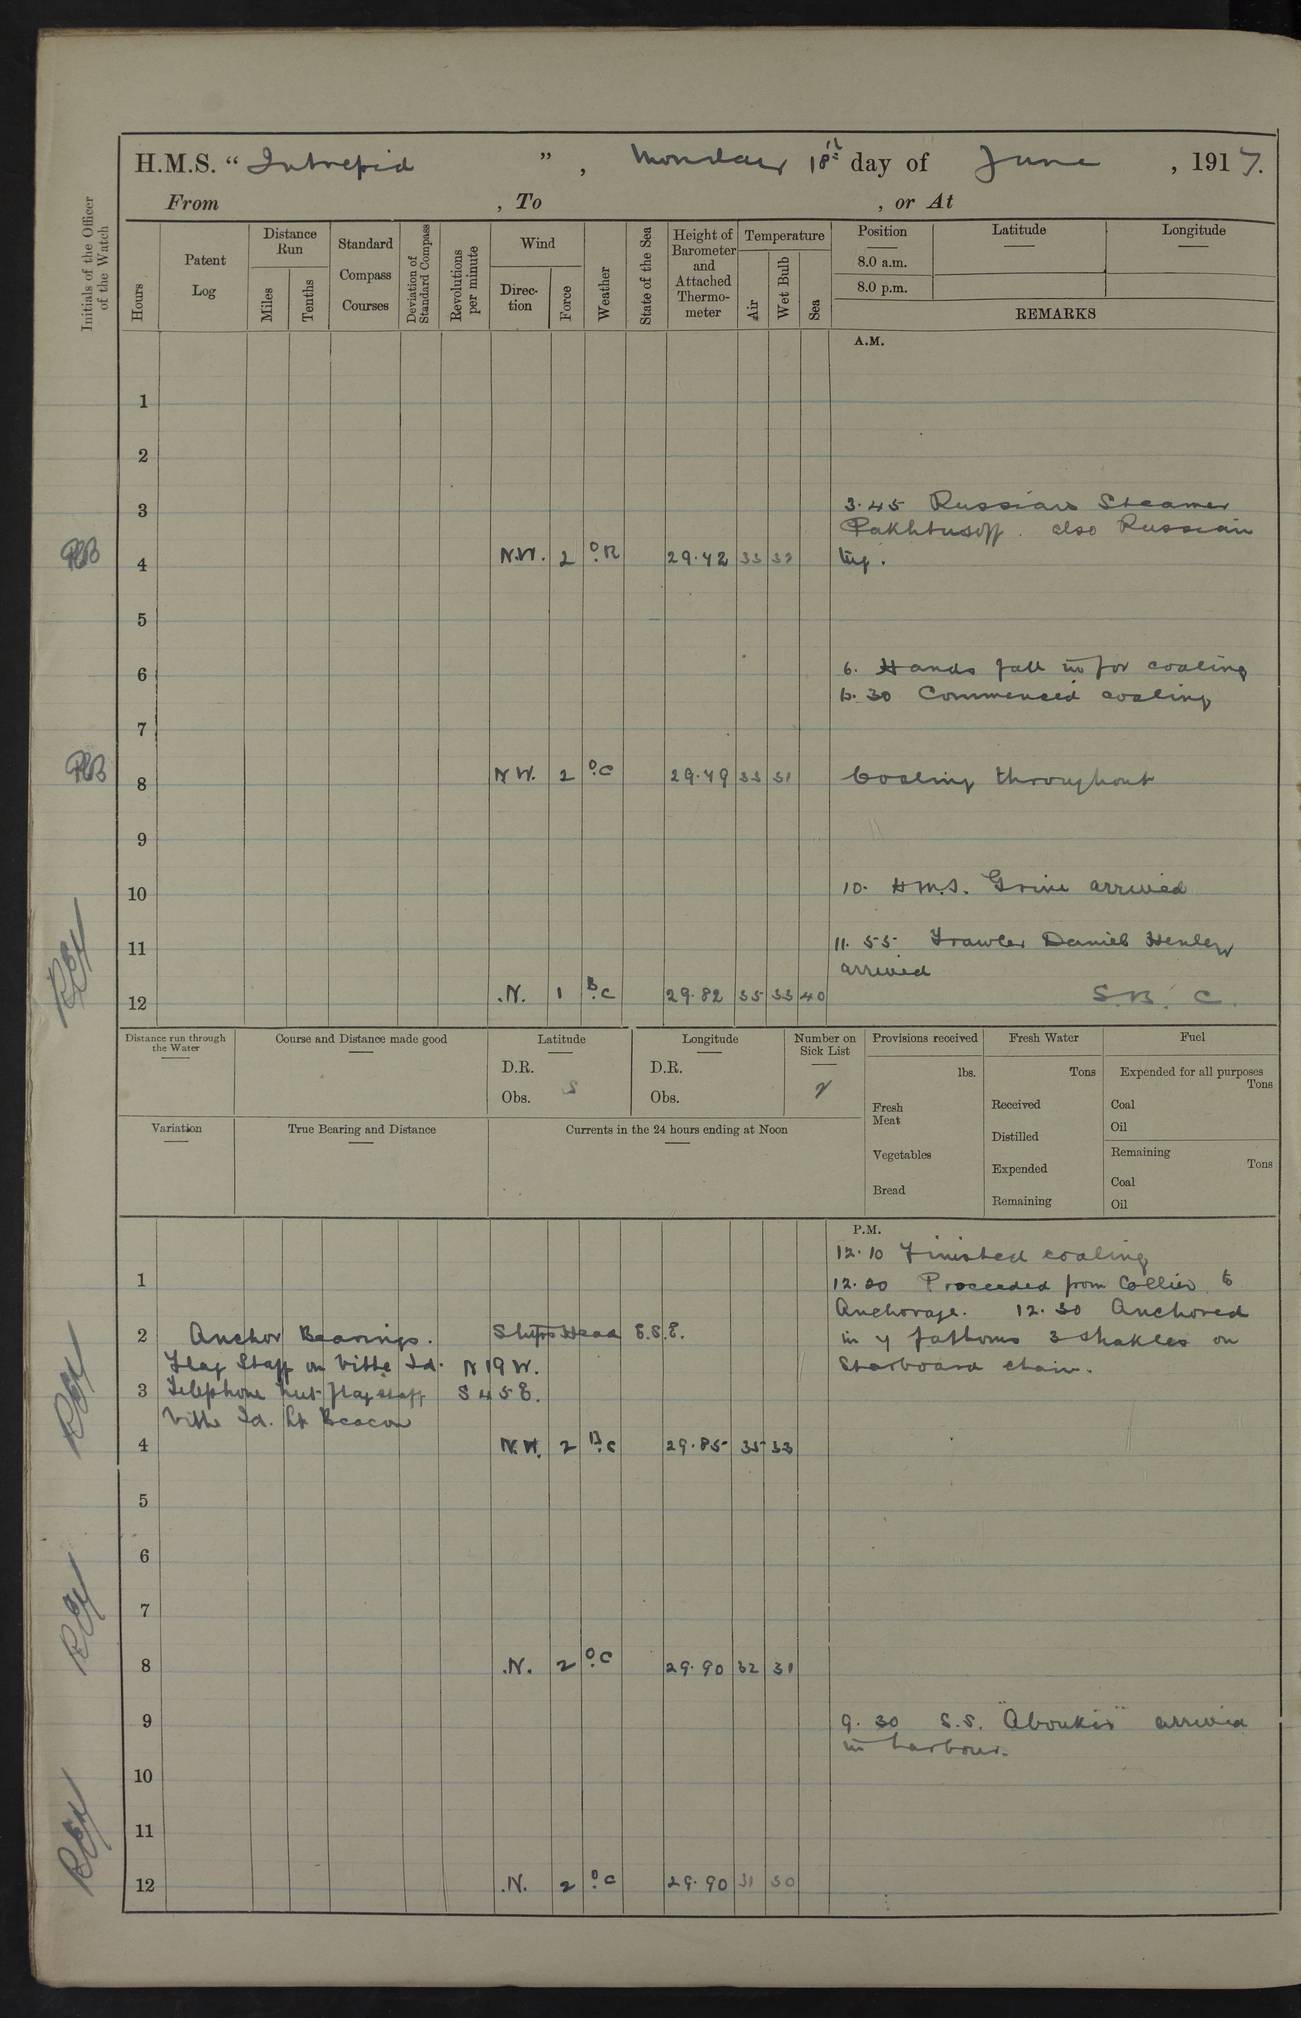 H.M.S. “ Intrepid ”, Monday 18th day of June , 1917.
From , To , or At
Initials of the Officer of the Watch
Hours
Patent Log
Distance Run
Miles
Tenths
Standard Compass Courses
Deviation of Standard Compass
Revolutions per minute
Wind
Direction
Force
Weather
State of the Sea
Height of Barometer and Attached Thermometer
Temperature
Air
Wet Bulb
Sea
Position
8.0 a.m.
8.0 p.m.
Latitude
Longitude
REMARKS
A.M.
1
2
3
3.45 Russian Steamer
Pakhtusoff. also Russian
4 N.W. 2 O.R 29.42 33 32 tug.
5
6
6. Hands fall in for coaling
6.30 Commenced coaling
7
8 NW. 2 O.C 29.49 33 31 Coaling throughout
9
10
10. H.M.S. Grive arrived
11
11.55 Trawler Daniel Henley
arrived
12 .N. 1 B.C 29.82 35 33 40 S.B. C.
Distance run through the Water
Course and Distance made good
Latitude
D.R.
Obs. S
Longitude
D.R.
Obs.
Number on Sick List
2
Provisions received
lbs.
Fresh Meat
Vegetables
Bread
Fresh Water
Tons
Received
Distilled
Expended
Remaining
Fuel
Expended for all purposes
Tons
Coal
Oil
Remaining
Tons
Coal
Oil
Variation
True Bearing and Distance
Currents in the 24 hours ending at Noon
P.M.
12.10 Finished coaling
1
12.20 Proceeded from Collier to
Anchorage. 12.30 Anchored
2 Anchor Bearings. Ships Head E.S.E. in 7 fathoms 3 shakles on
Flag Staff on Vithe Id. N 19 W. Starboard chain.
3 Telephone hut flagstaff S 45 E.
Vithe Id. Lt Beacon
4 N.W. 2 B.C 29.85 35 33
5
6
7
8 .N. 2 O.C 29.90 32 31
9
9.30 S.S. "Aboukir" arrived
in harbour.
10
11
12 .N. 2 O.C 29.90 31 30